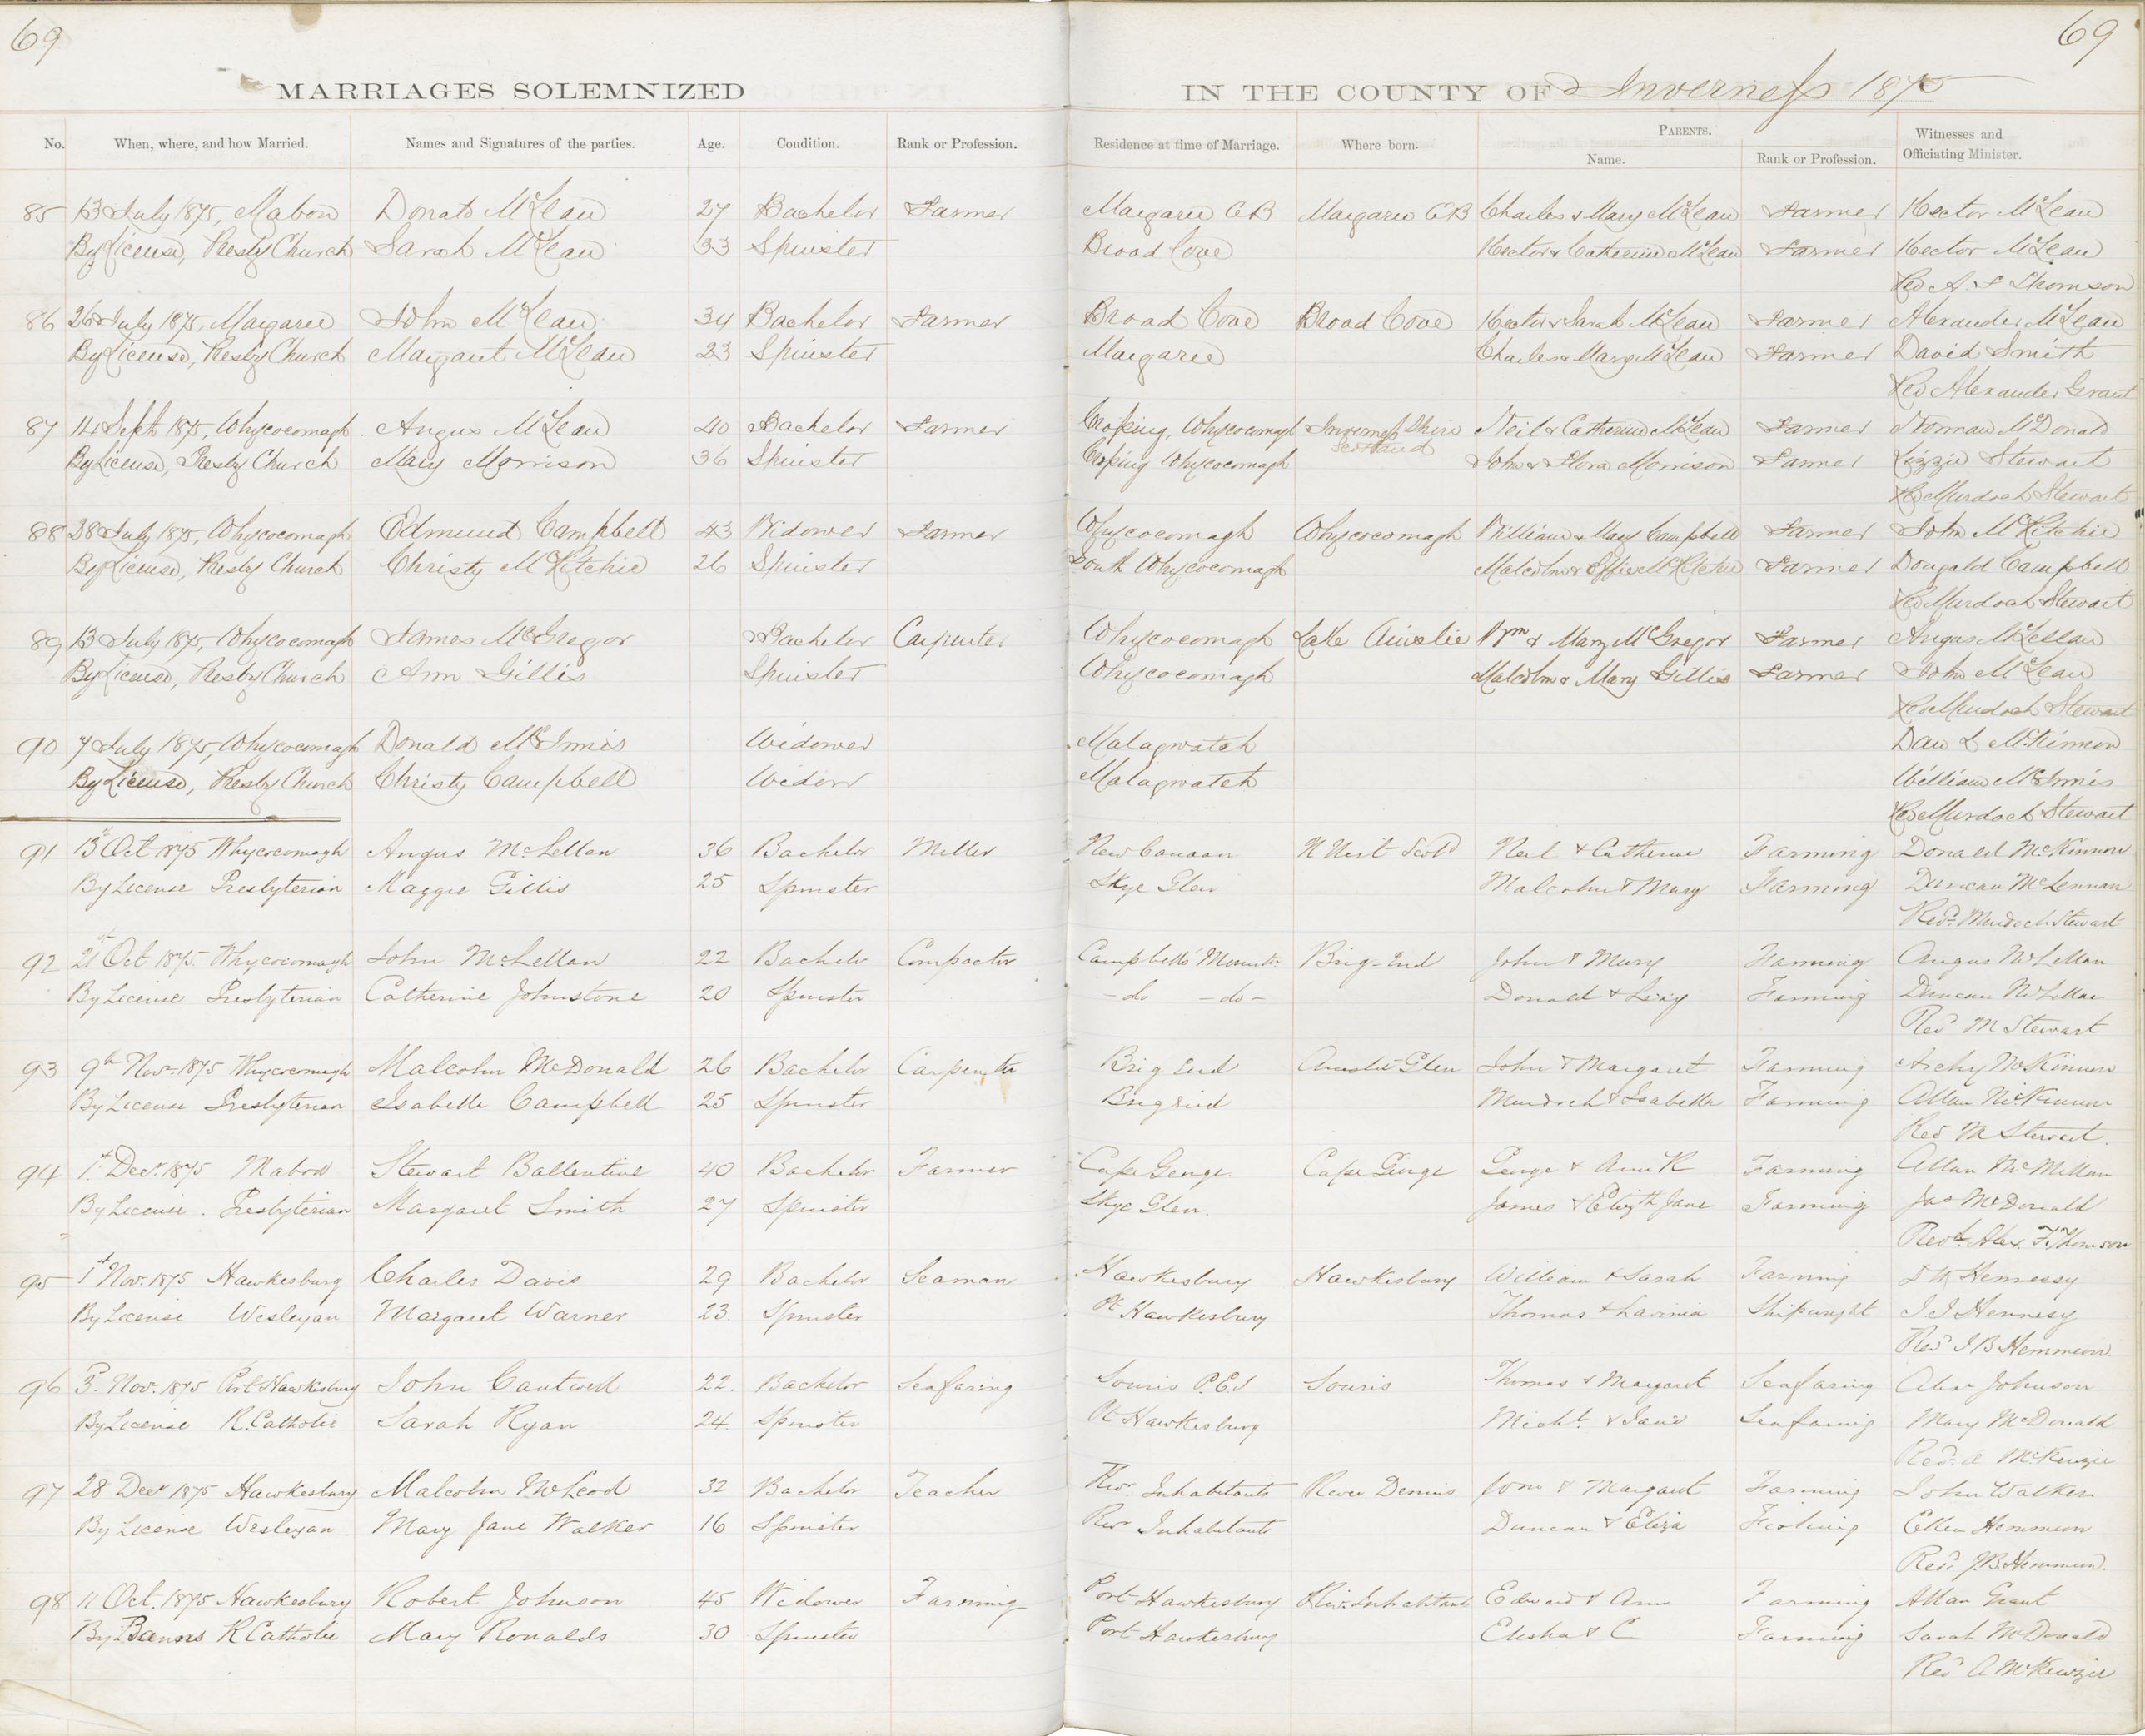 69
69
MARRIAGES SOLEMNIZED IN THE COUNTY OF Inverness 1875
PARENTS.
No. When, where, and how Married. Names and Signatures of the parties. Age. Condition. Rank or Profession. Residence at time of Marriage. Where born. Name. Rank or Profession. Witnesses and Officiating Minister.
85 13 July 1875, Mabou Donald McLean 27 Bachelor Farmer Margaree CB Margaree CB Charles & Mary McLean Farmer Hector McLean
By License, Presby Church Sarah McLean 33 Spinster Broad Cove Hector & Catherine McLean Farmer Hector McLean
Rev A. F Thomson
86 26 July 1875, Margaree John McLean 34 Bachelor Farmer Broad Cove Broad Cove Hector & Sarah McLean Farmer Alexander McLean
By License, Presby Church Margaret McLean 23 Spinster Margaree Charles & Mary McLean Farmer David Smith
Rev Alexander Grant
87 14 Sept 1875, Whycocomagh Angus McLean 40 Bachelor Farmer Whycocomagh Inverness Shire Scotland Neil & Catherine McLean Farmer Norman McDonald
By License, Presby Church Mary Morrison 36 Spinster Whycocomagh John & Flora Morrison Farmer Lizzie Stewart
Rev Murdoch Stewart
88 28 July 1875, Whycocomagh Edmund Campbell 43 Widower Farmer Whycocomagh Whycocomagh William & Mary Campbell Farmer John McRitchie
By License, Presby Church Christy McRitchie 26 Spinster South Whycocomagh Malcolm & Effie McRitchie Farmer Dougald Campbell
Rev Murdoch Stewart
89 13 July 1875, Whycocomagh James McGregor Bachelor Carpenter Whycocomagh Lake Ainslie Wm & Mary McGregor Farmer Angus McLellan
By License, Presby Church Ann Gillis Spinster Whycocomagh Malcolm & Mary Gillis Farmer John McLean
Rev Murdoch Stewart
90 7 July 1875, Whycocomagh Donald McInnis Widower Malagwatch Dan L McKinnon
By License, Presby Church Christy Campbell Widow Malagwatch William McInnis
Rev Murdoch Stewart
91 13 Oct 1875 Whycocomagh Angus McLellan 36 Bachelor Miller New Canaan N Uist Scotd Neil & Catherine Farming Donald McKinnon
By License Presbyterian Maggie Gillis 25 Spinster Skye Glen Malcolm & Mary Farming Duncan McLennan
Revd Murdoch Stewart
92 21st Oct 1875 Whycocomagh John McLellan 22 Bachelor Campbells Mount. Brig-End John & Mary Farming Angus McLellan
By License Presbyterian Catherine Johnstone 20 Spinster -do -do- Donald & Farming Duncan McLellan
Revd M Stewart
93 9th Nov. 1875 Whycocomagh Malcolm McDonald 26 Bachelor Carpenter Brig End Glen John & Margaret Farming Archy McKinnon
By License Presbyterian Isabella Campbell 25 Spinster Brig End Murdoch & Isabella Farming Allan McKinnon
Rev M Stewart.
94 1st Decr. 1875 Mabou Stewart Ballentine 40 Bachelor Farmer Cape George. Cape George George & Ann R Farming Allan McMillan
By License. Presbyterian Margaret Smith 27 Spinster Skye Glen. James & Elizth Jane Farming Jas McDonald
Revd. Alex. F. Thomson
95 1st Nov. 1875 Hawkesbury Charles Davis 29 Bachelor Seaman Hawkesbury Hawkesbury William & Sarah Farming Hennesy
By License Wesleyan Margaret Warner 23. Spinster Pt Hawkesbury Thomas & Lavinia Shipwright Hennesy
Revd J B Hemmeon.
96 3d. Nov. 1875 Port Hawkesbury John Cantwell 22. Bachelor Seafaring Souris P.E.I Souris Thomas & Margaret Seafaring Johnson
By License R. Catholic Sarah Ryan 24. Spinster Pt Hawkesbury Michl. & Jane Seafaring Mary McDonald
Revd. A McKenzie
97 28 Decr 1875 Hawkesbury Malcolm McLeod 32 Bachelor Teacher Rivr. Inhabitants River Dennis & Margaret Farming John Walker
By License Wesleyan Mary Jane Walker 16 Spinster Rivr Inhabitants Duncan & Eliza Fishing Ellen Hemmeon
Revd J.B Hemmeon.
98 11 Oct. 1875 Hawkesbury Robert Johnson 45 Widower Farming Port Hawkesbury Riv. Inhabitants Edward & Ann Farming Allan Grant
By Banns R Catholic Mary Ronalds 30 Spinster Port Hawkesbury Elisha & C Farming Sarah McDonald
Revd A McKenzie